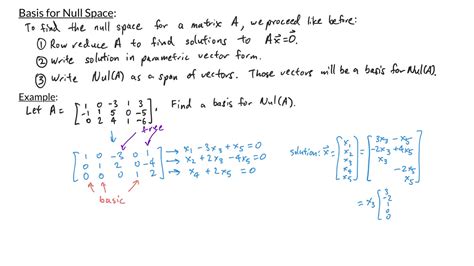 Basis for Null Space:
To find the null space for a matrix A, we proceed like before:
① Row reduce A to find solutions to Ax⃗=0⃗.
② Write solution in parametric vector form.
③ Write Nul(A) as a span of vectors. Those vectors will be a basis for Nul(A).
Example:
Let A = [1 0 -3 1 3
-1 1 5 0 -5
0 2 4 1 -6]. Find a basis for Nul(A).
free
[1 0 -3 0 1
0 1 2 0 -4
0 0 0 1 2]
→ x₁ - 3x₃ + x₅ = 0
→ x₂ + 2x₃ - 4x₅ = 0
→ x₄ + 2x₅ = 0
basic
solution: x⃗ = [x₁ x₂ x₃ x₄ x₅] = [3x₃ - x₅
-2x₃ + 4x₅
x₃
-2x₅
x₅]
= x₃ [3
-2
1
0
0]